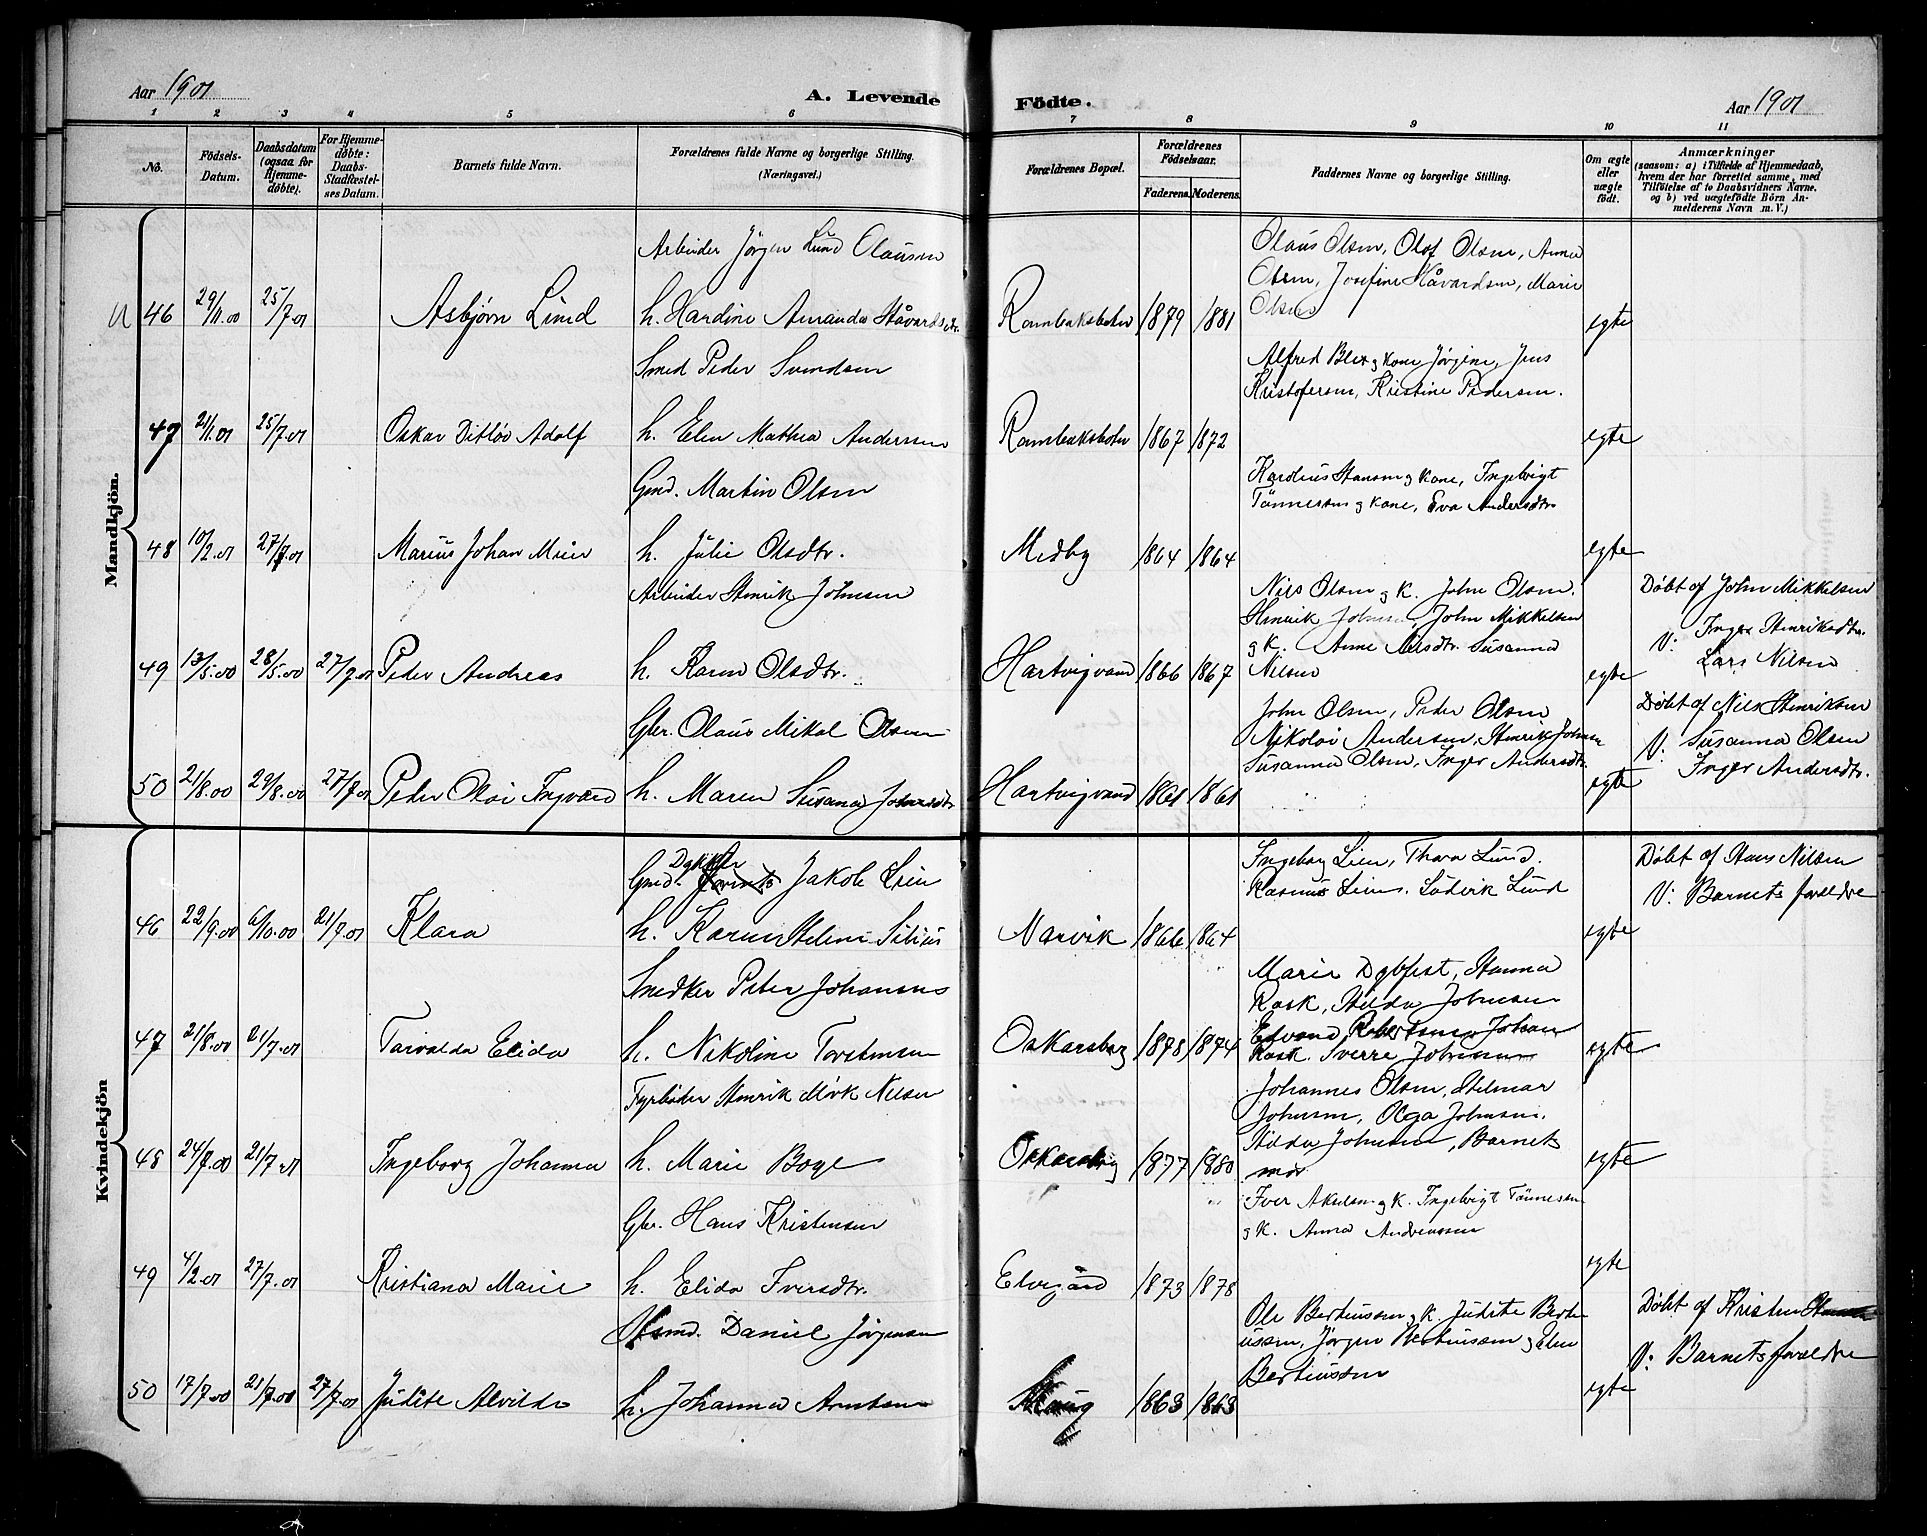 Aar 1901
A. Levende
Fødte.
Aar 1901
1 2 3 4 5 6 7 8 9 10 11
No.
Fødsels-Datum.
Daabsdatum (ogsaa for Hjemmedøbte).
For Hjemmedøbte: Daabs-Stadfæstelses Datum.
Barnets fulde Navn.
Forældrenes fulde Navne og borgerlige Stilling. (Næringsvei.)
Forældrenes Bopæl.
Forældrenes Fødselsaar.
Faderens. Moderens.
Faddernes Navne og borgerlige Stilling.
Om ægte eller uægte født.
Anmærkninger
(saasom: a) i Tilfælde af Hjemmedaab, hvem der har forrettet samme, med Tilføielse af to Daabsvidners Navne. og b) ved uægtefødte Børn Anmelderens Navn m. V.)
Mandkjön.
Arbeider Jørgen Lund Olausen
Olaus Olsen, Olof Olsen, Anna
Olsen, Josefine Håvardsen, Marie
Olsen
46 29/11.00 25/7.01 Asbjørn Lund h. Hardine Amanda Håvardsdtr. Rombaksbotn 1879 1881 egte
Smed Peder Svendsen
Alfred Blex og kone Jørgine, Jens
Kristofersen, Kristine Pedersen.
47 21/1.01 25/7.01 Oskar Ditløv Adolf h. Elen Mathea Andersen Rombaksbotn 1867 1872 egte
Gmd. Martin Olsen
Karolius Hansen og kone, Ingebrigt
Tønnesen og kone, Eva Andersdtr.
48 10/2.01 27/7.01 Marius Johan Meier h. Julie Olsdtr. Medby 1864 1864 egte
Arbeider Henrik Johnsen
Nils Olsen og k. John Olsen.
Henrik Johnsen, John Mikkelsen
og k. Anne Nilsdtr. Susanna
Nilsen
Døbt af John Mikkelsen
V: Inger Henriksdtr.
Lars Nilsen
49 13/5.00 28/5.00 27/7.01 Peder Andreas h. Karen Olsdtr. Hartvigvand 1866 1867 egte
Gbr. Olaus Mikal Olsen
John Olsen, Peder Olsen
Nikolai Andersen, Henrik Johnsen
Susanna Olsen, Inger Andersdtr.
Døbt af Nils Henriksen
V: Susanna Olsen
Inger Andersdtr.
50 21/8.00 29/8.00 27/7.01 Peder Olai Ingvard h. Maren Susana Johnsdtr Hartvigvand 1861 1861 egte
Kvindekjön
Gmd. Dykker Jakob Lien
Ingeborg Lien, Thora Lund.
Rasmus Lien. Ludvik Lund
Døbt af Hans Nilsen
V: Barnets forældre
46 22/9.00 6/10.00 21/7.01 Klara h. Karen Helene Narvik 1866 1864 egte
Snedker Peter Johansen
Marie Dybfest, Hanna
Rask, Hilda Johnsen
Edvard Robertsen, Johan
Rask. Sverre Johnsen
47 21/8.00 21/7.01 Torvalda Elida h. Nikoline Torstensen Oskarsborg 1878 1874 egte
Fyrbøder Henrik Mörk Nilsen
Johannes Olsen, Hilmar
Johnsen, Olga Johnsen.
Hilda Johnsen, Barnets
mor
48 24/7.00 21/7.01 Ingeborg Johanna h. Marie Boge Oskarsborg 1877 1880 egte
Gbr. Hans Kristensen
Iver Akselsen og k. Ingebrigt Tønnesen
og k. Anna Andreassen
49 4/2.01 27/7.01 Kristiana Marie h. Elida Iversdtr. Elvegård 1873 1878 egte
Daniel Jørgensen
Ole Bertiussen og k. Judite Berti
ussen, Jørgen Bertiussen og Elen
Bertiussen
Døbt af Kristen
V: Barnets forældre
50 17/7.00 21/7.00 27/7.01 Judite Alvilda h. Johanna Arntsen 1863 1863 egte